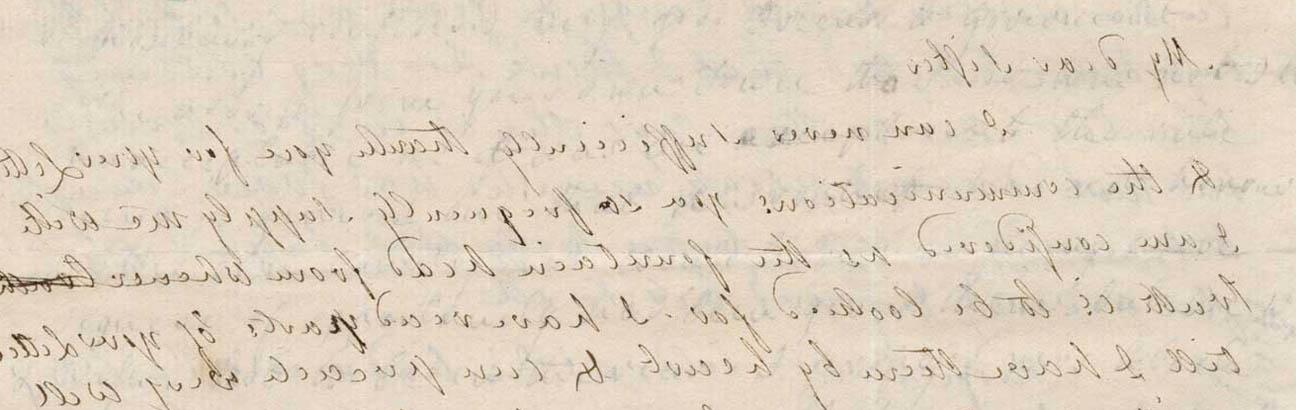 My dear Sister
I can never sufficiently thank you for your Lette
& the communications you so frequently supply me with
I am considered as the fountain head from whence
truth is to be looked for. I have read parts of your Lette
till I have them by heart &